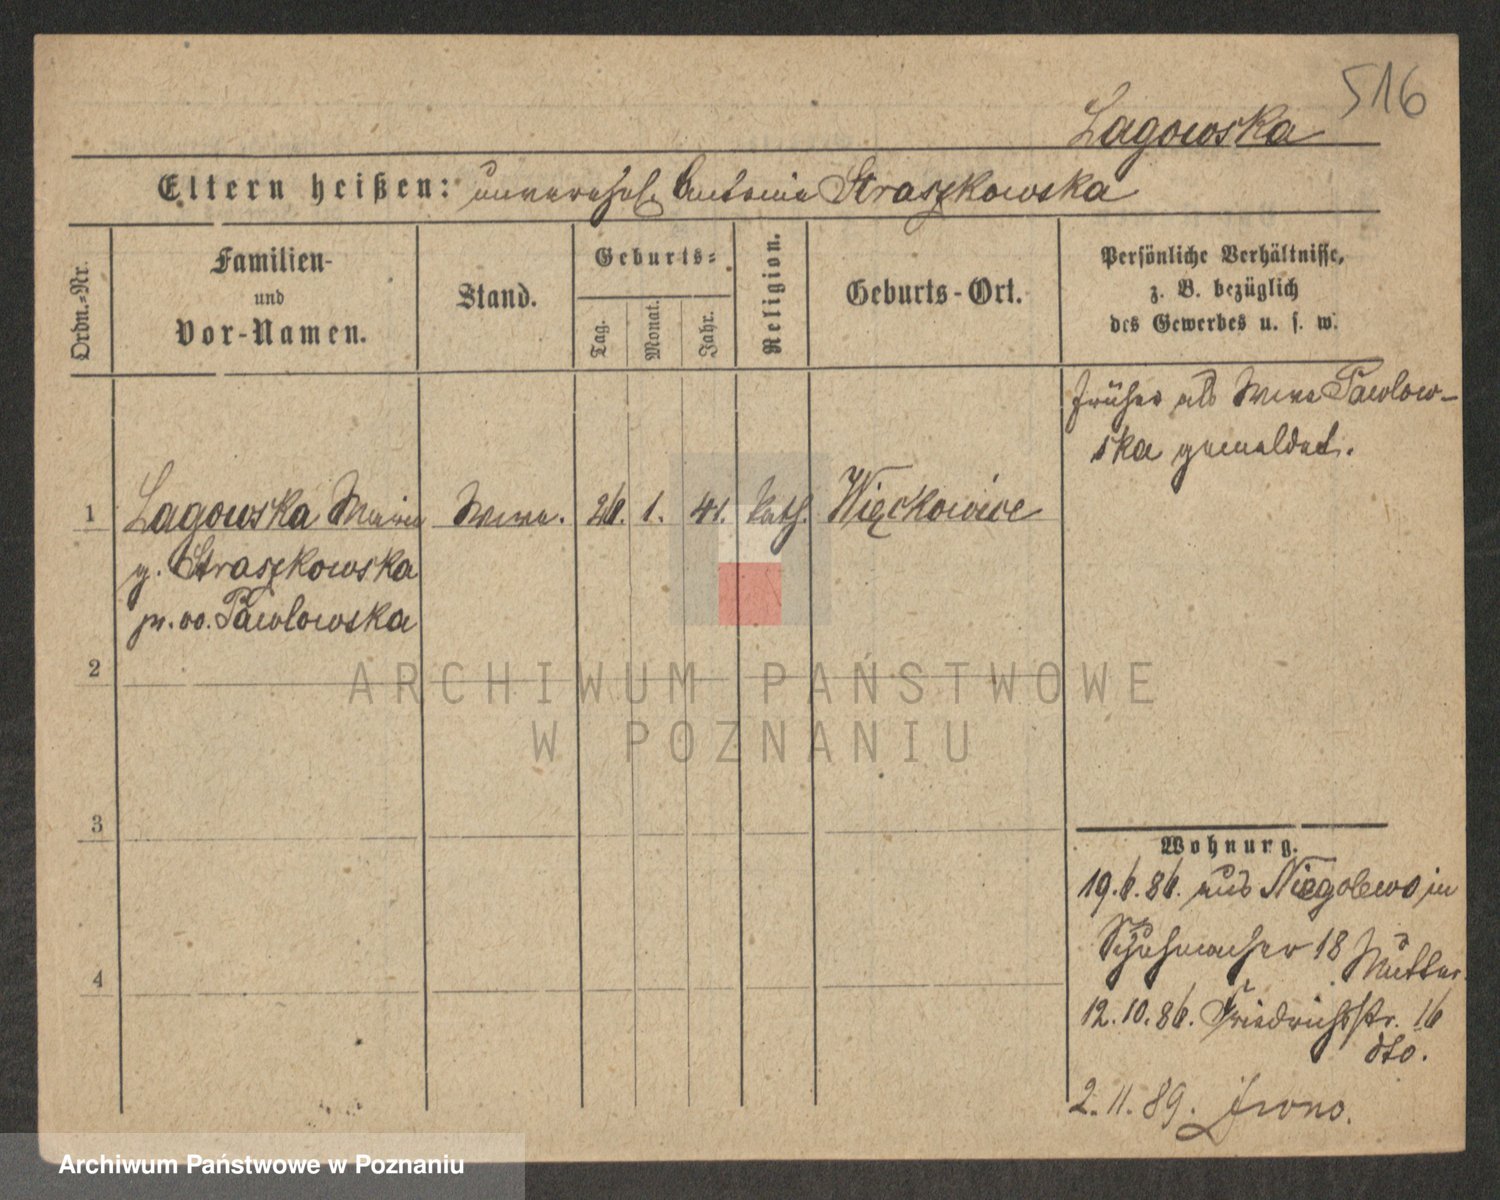 516
Lagowska
Eltern heißen: unverehel. Antonie Straszkowska
Ordn.-Nr.
Familien-
und
Vor-Namen.
Stand.
Geburts-
Tag.
Monat.
Jahr.
Religion.
Geburts-Ort.
Persönliche Verhältnisse,
z. B. bezüglich
des Gewerbes u. s. w.
früher als Wwe Pawlow-
ska gemeldet.
1 Lagowska Marie Wwe. 26. 1. 41. kath. Więckowice
g. Straszkowska
pr. vo. Pawlowska
2
3
4
Wohnung.
19.6.86. aus Niegolewo in
Schuhmacher 18 Mutter.
12.10.86. Friedrichstr. 16
dto.
2.11.89.
ARCHIWUM PAŃSTWOWE
W POZNANIU
Archiwum Państwowe w Poznaniu